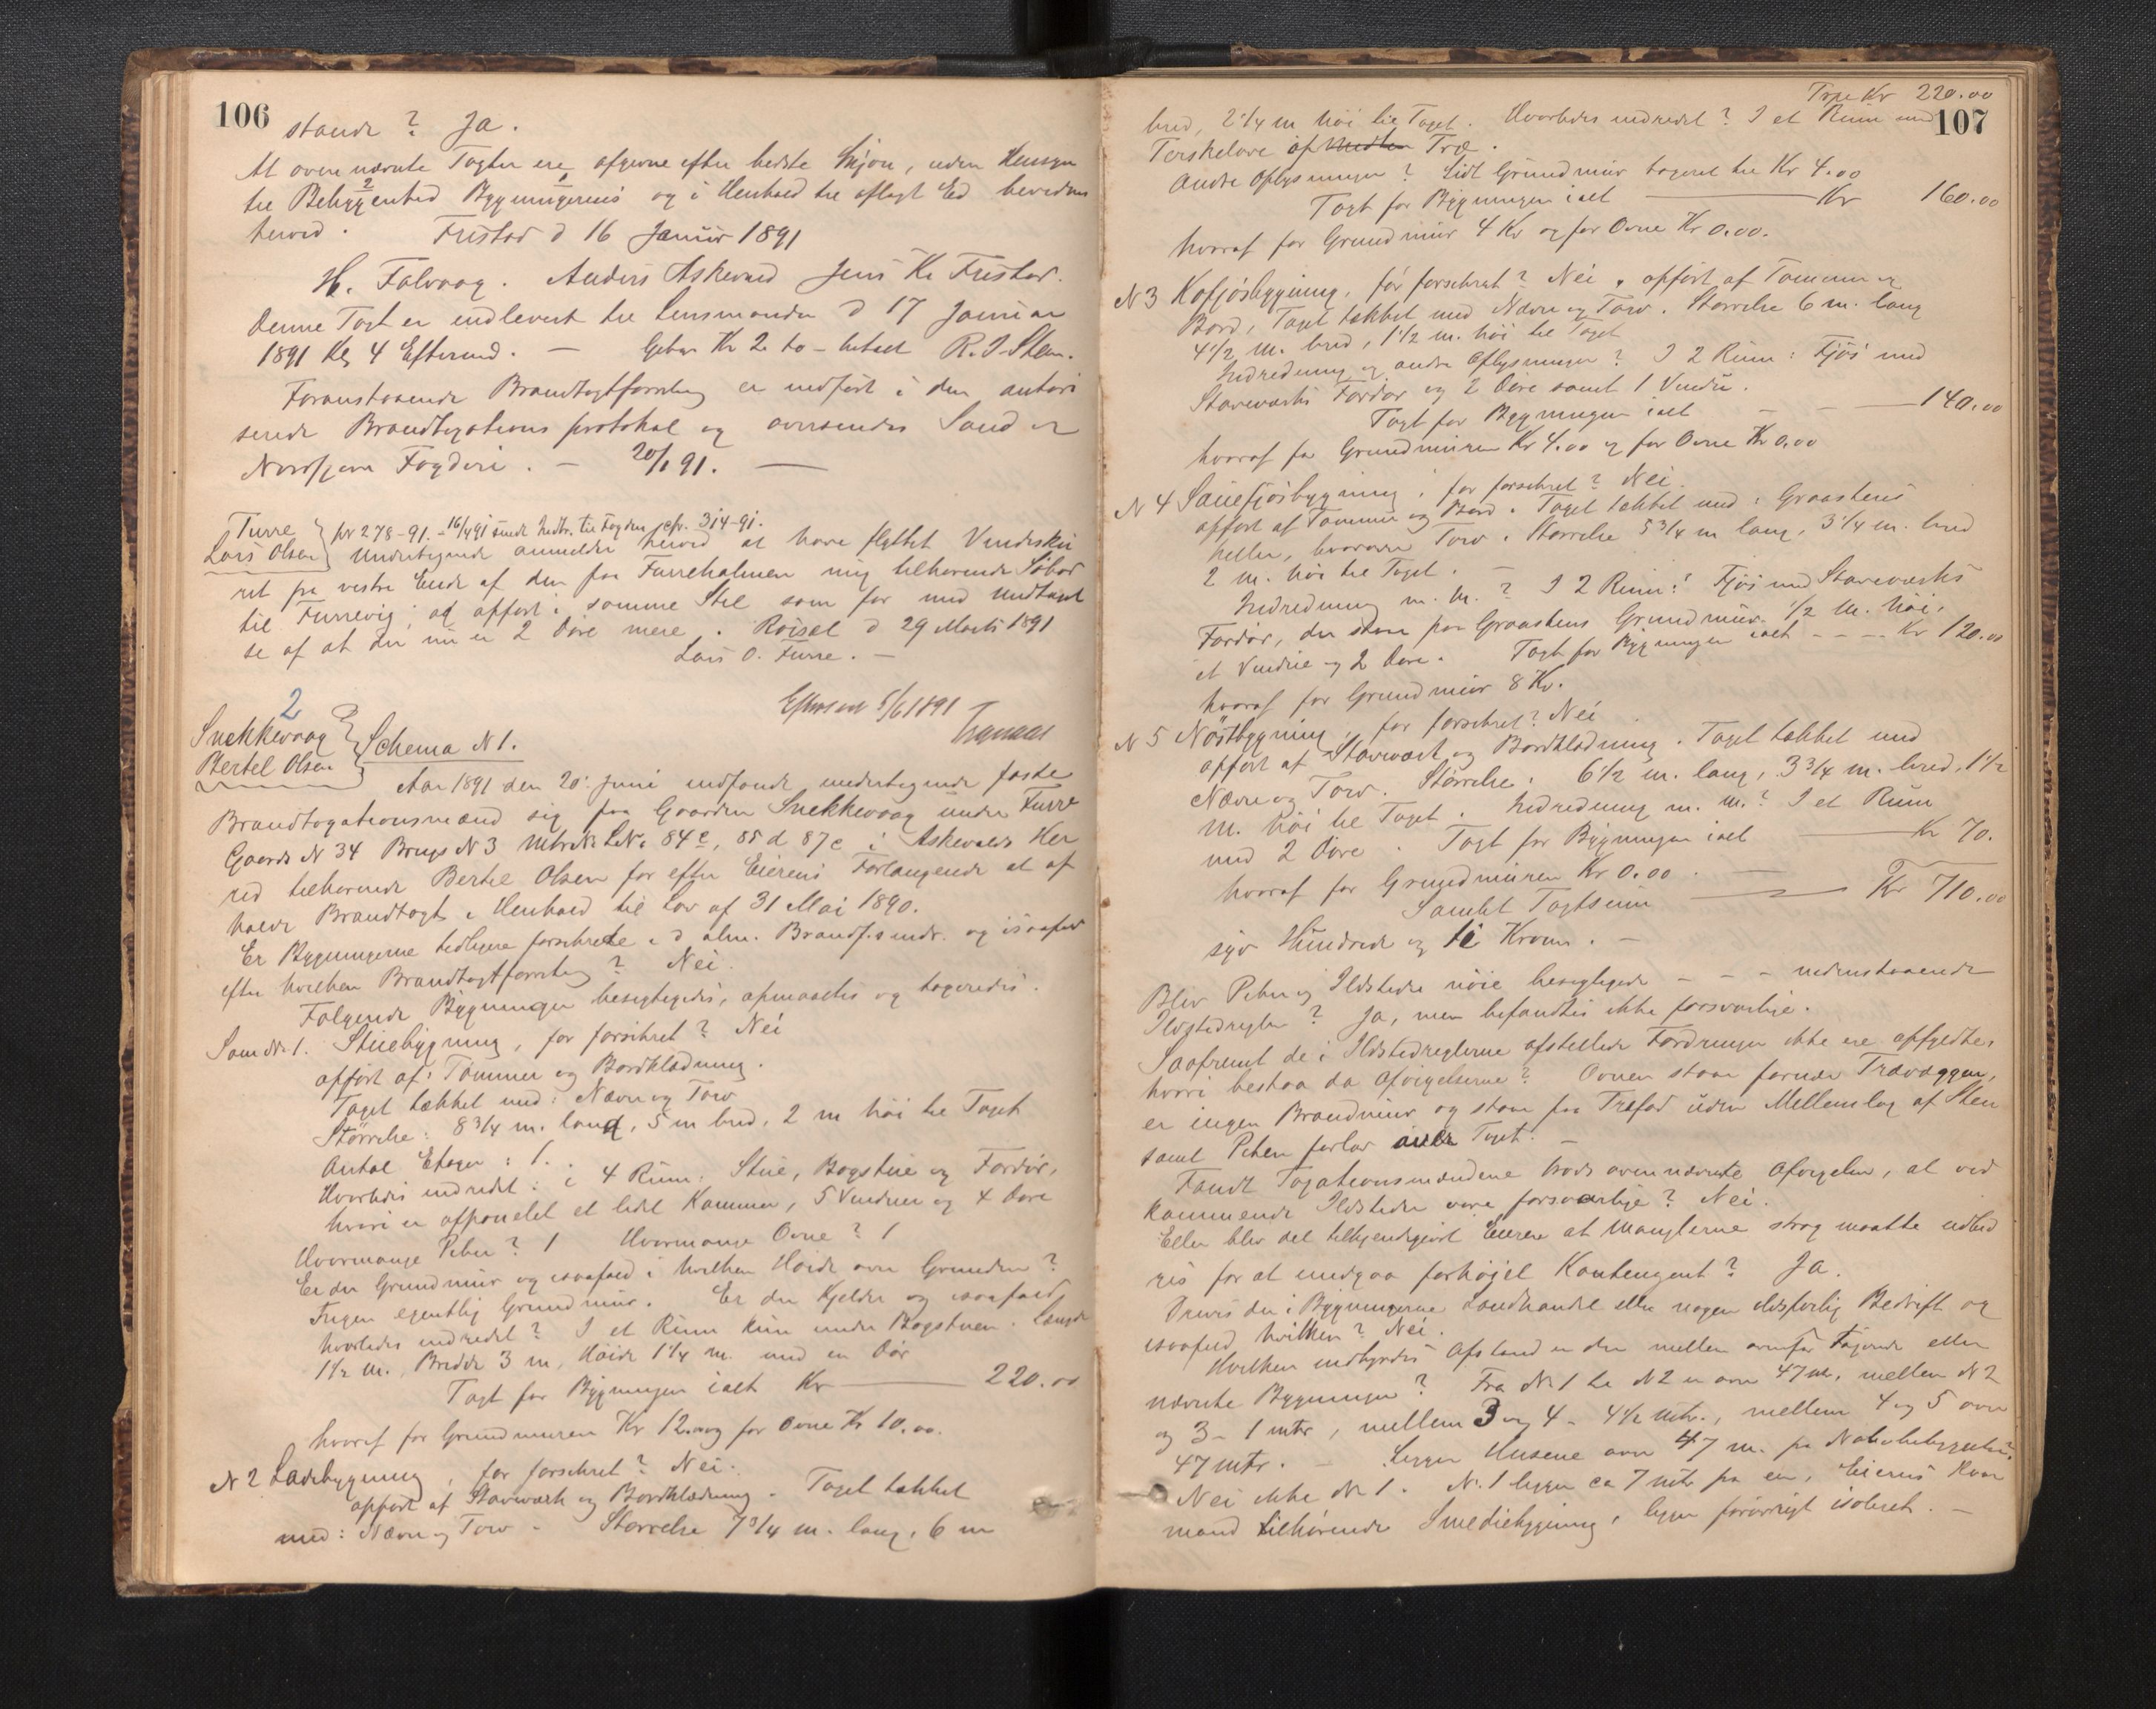 106
stande? Ja.
At ovennævnte Taxter ere afgivne efter bedste Skjøn, uden Hensyn
til Beliggenhed Bygningernes og i Henhold til aflagt Ed bevidnes
herved. Fristad d 16 Januar 1891
H. Folvaag. Anders Askevand Jens Kr Fristad.
Denne Taxt er indleveret til Lensmanden d 17 Januar
1891 Kl 4 Eftermd. — Gebyr Kr 2 to - betalt R. J. Steen.
Foranstaaende Brandtaxtforretning er indført i den autori
serede Brandtaxations protokol og oversendes Sønd og
Nordfjord Fogderi. — 20/1 91. —
Furre
Lars Olsen
pr 278-91. - 16/4 91 sendt Indbr. til Fogden cfr. 314-91.
Undertegnede anmelder herved at have flyttet Vindesku
ret fra vestre Ende af den paa Furreholmen mig tilhørende Søbod
til Furrevig; og opført i samme Stil som før med Undtagel
se af at der nu er 2 Døre mere. Røisæt d 29 Marts 1891
Lars O. Furre. —
Efterseet 5/6 1891
2
Snekkevaag
Bertel Olsen
Schema N 1.
Aar 1891 den 20. Juni indfandt undertegnede faste
Brandtaxationsmænd sig paa Gaarden Snekkevaag under Furre
Gaards N 34 Brugs N 3 MtrNr LNr 84 c, 85 d 87 c i Askevolds Her
red tilhørende Bertel Olsen for efter Eierens Forlangende at af
holde Brandtaxt i Henhold til Lov af 31 Mai 1890.
Er Bygningerne tidligere forsikrede i d alm. Brandfs indr. og isaafald
efter hvilken Brandtaxtforretng? Nei.
Følgende Bygninger besigtigedes, opmaaltes og taxeredes.
Som Nr. 1. Stuebygning, før forsikret? Nei
opført af: Tømmer og Bordklædning.
Taget tækket med: Næver og Torv
Størrelse: 8 3/4 m. lang, 5 m bred, 2 m høi til Taget
Antal Etager: 1.
Hvorledes indredet: i 4 Rum: Stue, Bagstue og Fordør,
hvori er afpanelet et lidet Kammer, 5 Vinduer og 4 Døre
Hvormange Piber? 1 Hvormange Ovne? 1
Er der Grundmur og isaafald i hvilken Høide over Grunden?
Ingen egentlig Grundmur. Er der Kjelder og isaafald
hvorledes indredet? I et Rum kun under Bagstuen. Længde
1 1/2 m., Bredde 3 m, Høide 1 1/4 m. med en Dør
Taxt for Bygningen ialt Kr — 220.00
hvoraf for Grundmuren Kr 12.00 og for Ovne Kr 10.00.
N 2 Ladebygning, før forsikret? Nei.
opført af Staveværk og Bordklædning. Taget tækket
med: Næver og Torv. Størrelse 7 3/4 m. lang, 6 m
107
Trpt Kr 220.00
bred, 2 1/4 m høi til Taget. Hvorledes indredet? I et Rum med
Terskelove af Træ.
Andre Oplysninger? Lidt Grundmur taxeret til Kr 4.00
Taxt for Bygningen ialt — Kr 160.00
hvoraf for Grundmur 4 Kr og for Ovne Kr 0.00.
N 3 Kofjøsbygning, før forsikret? Nei, opført af Tømmer og
Bord, Taget tækket med Næver og Torv. Størrelse 6 m. lang
4 1/2 m. bred, 1 1/2 m. høi til Taget
Indredning og andre Oplysninger? I 2 Rum: Fjøs med
Staveværks Fordør og 2 Døre samt 1 Vindu.
Taxt for Bygningen ialt — — — 140.00
hvoraf for Grundmuren Kr 4.00 og for Ovne Kr 0.00
N 4 Sauefjøsbygning, før forsikret? Nei.
opført af Tømmer og Bord. Taget tækket med: Graastens
heller, hvorover Torv. Størrelse 5 3/4 m lang, 3 1/4 m. bred
2 m. høi til Taget. —
Indredning m. m.? I 2 Rum: Fjøs med Staveværks
Fordør, der staar paa Graastens Grundmur 1/2 m. høi,
et Vindue og 2 Døre. Taxt for Bygningen ialt - - - Kr 120.00
hvoraf for Grundmur 8 Kr.
N 5 Nøstbygning, før forsikret? Nei
opført af Staveværk og Bordklædning. Taget tækket med
Næver og Torv. Størrelse: 6 1/2 m. lang, 3 3/4 m. bred, 1 1/2
m. høi til Taget. Indredning m. m.? I et Rum
med 2 Døre. Taxt for Bygningen ialt — Kr 70.
hvoraf for Grundmuren Kr 0.00. —
Samlet Taxtsum — Kr 710.00
syv Hundrede og ti Kroner. —
Blev Piber og Ildsteder nøie besigtigede - - - nedenstaaende
Ildstedregler? Ja, men befandtes ikke forsvarlige.
Saafremt de i Ildstedreglerne opstillede Fordringer ikke ere opfyldte,
hvori bestaa da Afvigelserne? Ovnen staar for nær Trævæggen,
er ingen Brandmur og staar paa Træfod uden Mellemlag af Sten
samt Piben forlav over Taget. —
Fandt Taxationsmændene trods ovennævnte Afvigelser, at ved
kommende Ildsteder vare forsvarlige? Nei.
Eller blev det tilkjendegivet Eieren at Manglerne strax maatte udbed
res for at undgaa forhøjet Kontengent? Ja.
Drives der i Bygningerne Landhandel eller nogen ildsfarlig Bedrift og
isaafald hvilken? Nei.
Hvilken indbyrdes Afstand er der mellem ovenfor Tagende eller
nævnte Bygninger? Fra Nr 1 til N 2 er over 47 m, mellem N 2
og 3 - 1 mtr, mellem 3 og 4 - 4 1/2 mtr., mellem 4 og 5 over
47 mtr. — Ligger Husene over 47 m. fra Nabobebyggelse?
Nei ikke Nr 1. Nr. 1 ligger ca 7 mtr fra en, Eierens Kaar
mand tilhørende Smediebygning, ligger forøvrigt isoleret. —